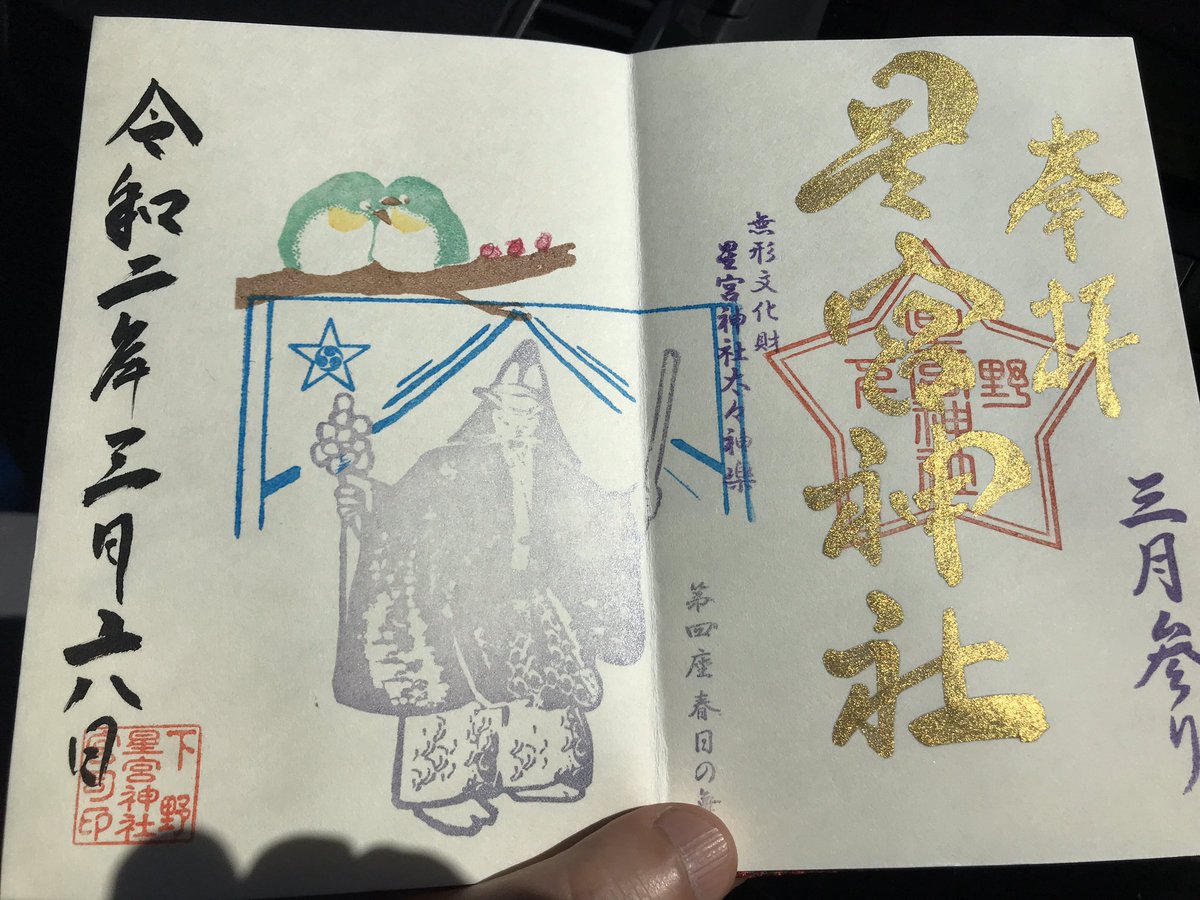 奉拝
星宮神社
三月参り
無形文化財
星宮神社太々神楽
第四座春日の
令和二年三月十八日
下野
星宮神社
宮司印